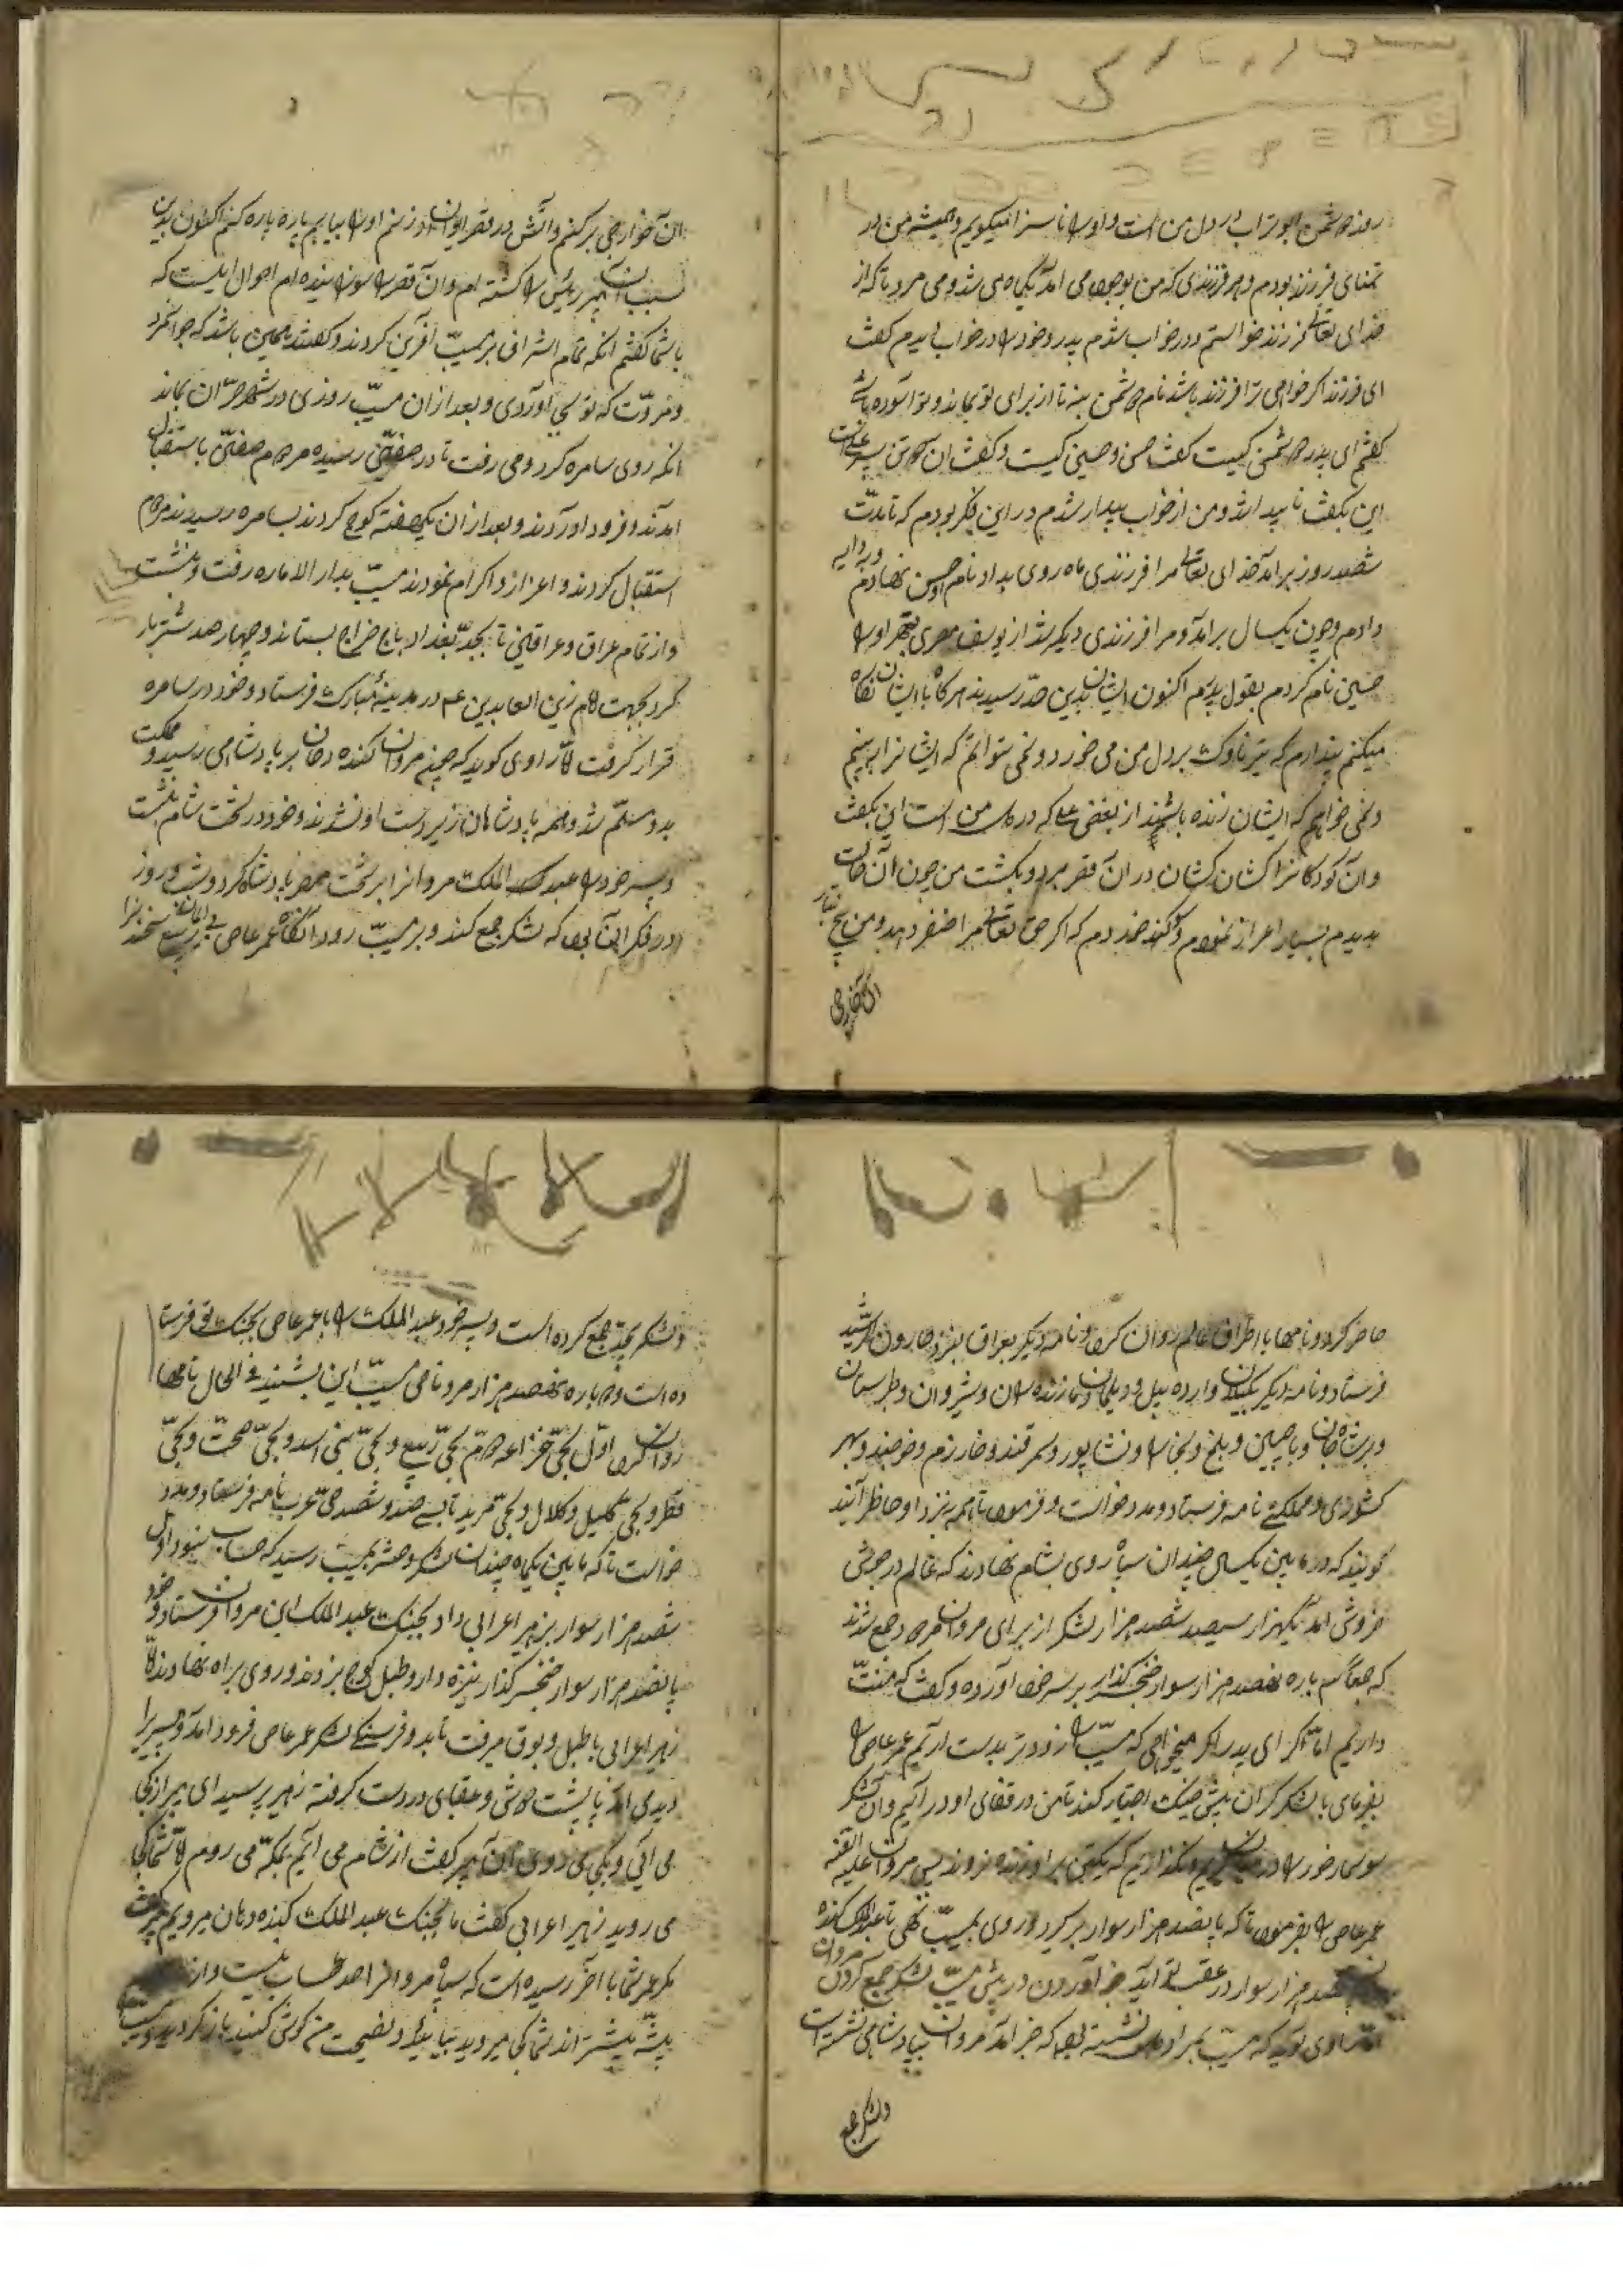 روند دشمن ابوتراب در دل من است و او را ناسزا میکویم و همیشه من در
تمنای فرزند بودم و هر فرزندی که من بوجود می امد یکماه می شد و می مرد تا که از
خدای تعالی فرزند خواستم و در خواب شدم پدر خود را در خواب دیدم کفت
ای فرزند اکر خواهی ترا فرزند باشد نام دشمن بنه تا از برای تو بماند و تو اسوده باشی
کفتم ای پدر دشمن کیست کفت حسن و حسین کیست و کفت ان دو تن پسر علی است
این بکفت ناپیدا شد و من از خواب بیدار شدم در این فکر بودم که تا مدّت
شصد روز برامد خدای تعالی مرا فرزندی ماه روی بداد نام او حسن نهادم و بدایه
دادم و چون یکسال برامد و مرا فرزندی دیکر شد از یوسف مصری بهتر او را
حسین نام کردم بقول پدرم اکنون ایشان بدین حدّ رسیدند هر کاه با ایشان نکاه
میکنم پندارم که تیر ناوک بر دل من می خورد و نمی توانم که ایشانرا ببینم
و نمی خواهم که ایشان زنده باشند از بغض علی که در دل من است این بکفت
و آن کودکانرا کشان کشان در ان قصر برد و بکشت من چون آن حالت
بدیدم بسیار اعراز نمودم و سوکند خوردم که اکر حق تعالی مرا ظفر دهد و من بیخ و تبار
ان خوارجی
ان خوارجی بر کنم و آتش در قصر ایوان او زنم او را بیابم پاره پاره کنم اکنون بدین
سبب آن پیر رئیس را کشته ام و آن قصر را سوزانیده ام احوال اینست که
با شما کفتم انکه تمام اشراف بر مسیّب آفرین کردند و کفتند همین باشد که جوانمرد
و مروّت که تو بجای آوردی و بعد از ان مسیّب روزی در شهر حرّان بماند
انکه روی سامره کرد و می رفت تا در صفّین رسید مردم صفّین باستقبال
امدند و فرود اوردند و بعد از ان یکهفته کوچ کردند بسامره رسیدند مردم
استقبال کردند و اعزاز و اکرام نمودند مسیّب بدار الاماره رفت و بنشست
و از تمام عراق و عراقین تا بحدّ بغداد باج خراج بستاند و چهار صد شتر بار
کرد بجهت امام زین العابدین ع در مدینۀ مبارک فرستاد و خود در سامره
قرار کرفت امّا راوی کوید که چون مروان کنده دهان بر پادشاهی رسید و مملکت
بدو مسلّم شد و همه پادشاهان زیر دست او شدند و خود در تخت شام بنشست
و پسر خود را عبد الملک مروانرا بر تخت مصر پادشاه کرد و شب و روز
در فکر آن بود که لشکر جمع کند و بر مسیّب رود انکاه عمر عاصی بی ایمان
حاضر کرد و نامها باطراف عالم روان کرد و نامه دیکر بعراق بنزد هارون الرّشید
فرستاد و نامه دیکر بکیلان و اردبیل و دیلمان و مازندران و شیروان و طبرستان
و بدشت خان و با چین و بلخ و بخارا و نشاپور و سمرقند و خارزم و خوجند و بهر
کشوری و مملکتی نامه فرستاد و مدد خواست و فرمود تا همه نزد او حاظر آیند
کویند که در مابین یکسال چندان سپاه روی بشام نهادند که عالم در جوش
خروش امد یکهزار سیصد شصد هزار لشکر از برای مروان مردود جمع شدند
باره نهصد هزار سوار خنجر کذار بر سر خود آورده و کفت که منّت
داریم امّا اکر ای پدر اکر میخواهی که مسیّب را زودتر بدست اریم عمر عاصی را
بفرمای با لشکر کران پیش جنک اختیار کند تا من در قفای او در آیم و آن لشکر
در میان کیریم و نکذاریم که یکتن بر او زنده نروند پس مروان علیه العنه
عمر عاصی را بفرمود تا که پانصد هزار سوار بر کیرد و روی بمسیّب نهی تا عبد الملک کنده
هزار سوار در عقب تو اید خبر آوردن در پیش مسیّب لشکر جمع کردن مروان
امّا راوی کوید که مسیّب بمراد دل نشسته بود که خبر امد مروان بپادشاهی نشسته است
و لشکر بیحد
و لشکر بیحد جمع کرده است و پسر خود عبد الملک را با عمر عاصی بجنک تو فرستا
ده است و دوباره نهصد هزار مرد نامی مسیّب این بشنید فی الحال نامها
روان کرد اوّل بحیّ خزاعه دوّم بحیّ ربیع و بحیّ بنی اسد و بحیّ صحت و بحیّ
قطر و بحیّ کلیل و کلال و بحیّ مرید تا بسه صد و شصد حیّ عرب نامه فرستاد و مدد
خواست تا که مابین یکماه چندان لشکر و حشر بمسیّب رسید که حساب نبود اوّل
شصد هزار سوار بزهیر اعرابی داد بجنک عبد الملک ابن مروان فرستاد و خود
پانصد هزار سوار خنجر کذار نیزه دار و طبل کوچ بزدند و روی براه نهادند امّا
زهیر اعرابی با طبل و بوق میرفت تا بدو فرسنکی لشکر عمر عاصی فرود امد و پیریرا
دیدی امد با پشت دوش و عقبای در دست کرفته زهیر پرسید ای پیر از کجا
می آئی و بکجا می روی آن پیر کفت از شام می آیم بمکّه می روم امّا شما کجا
می روید زهیر اعرابی کفت ما بجنک عبد الملک کنده دهان میرویم پیر کفت
مکر عمر شما با آخر رسیده است که سپاه مروانرا حد حساب نیست و از
پشّه بیشتر اند شما کجا میروید بیائید و نصیحت من کوش کنید باز کردید